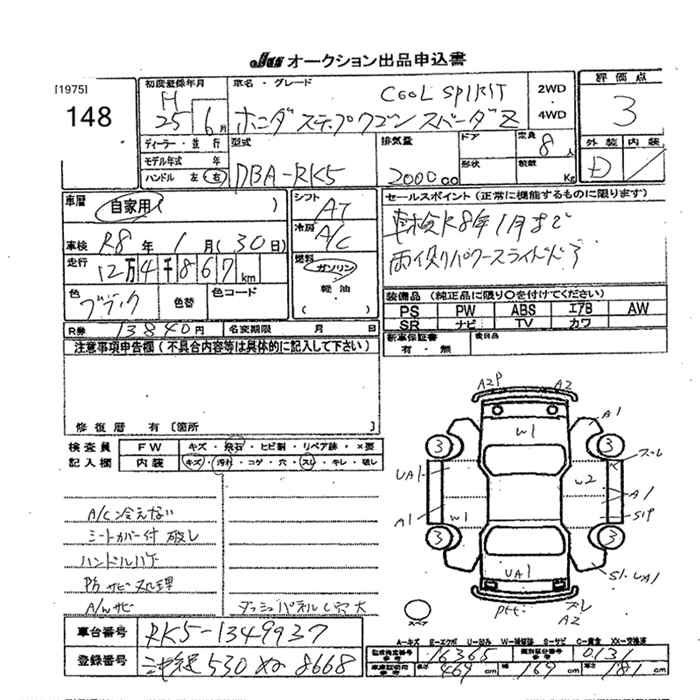 JU オークション出品申込書
[1975]
148
初度登録年月
H 25 6月
車名・グレード
COOL SPIRIT
ホンダ ステップワゴン スパーダ Z
2WD
・
4WD
評価点
3
外装 内装
D
ディーラー・並行
モデル年式 年
ハンドル 左 右
型式
DBA-RK5
排気量
2000cc
ドア
形状
定員
8人
積載
Kg
車歴
自家用( )
車検 R8年 1月(30日)
走行
12万4千867km
色
ブラック
色替
色コード
R券 13840円
名変期限 月 日
シフト
AT
冷房
A/C
燃料
ガソリン
軽油
( )
セールスポイント(正常に機能するものに限ります)
車検R8年1月まで
両側パワースライドドア
装備品(純正品に限り○を付けてください)
PS PW ABS エアB AW
SR ナビ TV カワ
新車保証書
有・無
後日品
注意事項申告欄(不具合内容等は具体的に記入して下さい)
修復歴 有〔箇所 〕
検査員
記入欄
FW キズ・飛石・ヒビ割・リペア跡・×要
内装 キズ・汚れ・コゲ・穴・スレ・キレ・破レ
A/C冷えない
シートカバー付 破レ
ハンドルハゲ
P内 サビ 処理
A/Wサビ
ダッシュパネルビス穴大
A2P A2
W1
A1
3 3
スレ
UA1
W2
A1
A1
W1
S1P
3 3
UA1
S1・UA1
スレ
A2
スペア
A-キズ E-エクボ U-凹み W-補修跡 S-サビ C-腐食 XX-交換済
車台番号 RK5-1349937
登録番号 530 8668
16365
0131
長さ 469cm 幅 169cm 高さ 181cm